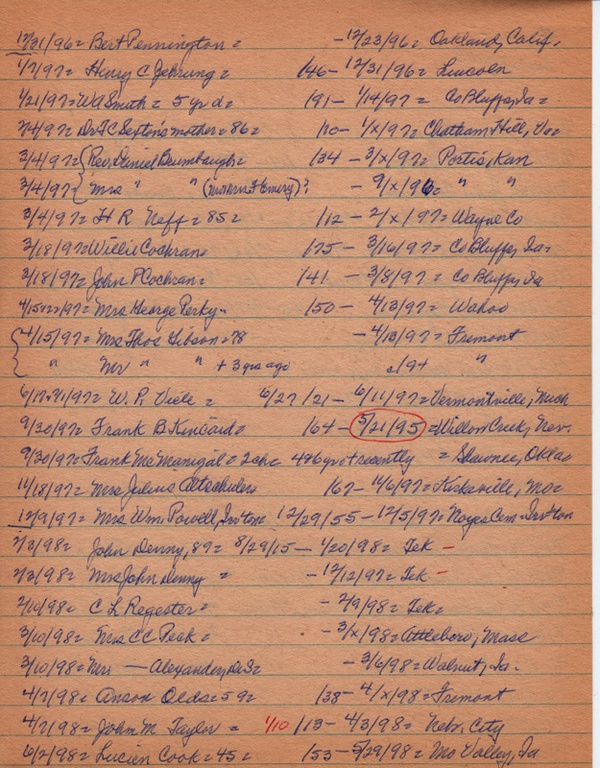 12/31/96 = Bert Pennington = - 12/23/96 = Oakland, Calif.
1/7/97 = Henry C Jehrung = /46 - 12/31/96 = Lincoln
1/21/97 = WA Smith = 5 yr d = /91 - 1/14/97 = Co Bluffs, Ia =
2/4/97 = Dr TC Sexton's mother = 86 = /10 - 1/x/97 = Chatham Hill, Va =
3/4/97 = Rev. Daniel Brumbaugh = /34 - 3/x/97 = Portis, Kan
3/4/97 = Mrs " " - 9/x/96 = " "
3/4/97 = H R Neff = 85 = /12 - 2/x/97 = Wayne Co
3/18/97 = Willie Cochran = /75 - 3/16/97 = Co Bluffs, Ia =
3/18/97 = John P Cochran = /41 - 3/8/97 = Co Bluffs, Ia
4/15+27/97 = Mrs George Perky = /50 - 4/13/97 = Wahoo
4/15/97 = Mrs Thos Gibson = 78 - 4/13/97 = Fremont
" Mr " " + 3 yrs ago c/94 "
W. P. Viele = 6/27/21 - 6/11/97 = Vermontville, Mich
9/30/97 = Frank B Kincaid = /64 - 5/21/95 = Willow Creek, Nev.
9/30/97 = Frank McManigal = 2 ch = recently = Shawnee, Okla
11/18/97 = Mrs Julius Altschuler = /67 - 11/6/97 = Kirksville, Mo =
12/9/97 = Mrs Wm. Powell, Irvton 12/29/55 - 12/5/97 = Noyes Cem - Irvton
2/3/98 = John Denny, 82 = 8/29/15 - 1/20/98 = Tek -
2/3/98 = Mrs John Denny = - 12/12/97 = Tek -
2/10/98 = C L Regester = - 2/9/98 = Tek =
3/10/98 = Mrs CC Peck = - 3/x/98 = Attleboro, Mass
3/10/98 = Mrs — Alexander, - 3/6/98 = Walnut, Ia.
4/7/98 = Anson Olds = 59 = /38 - 4/x/98 = Fremont
4/7/98 = John M. Taylor = 1/10 /13 - 4/3/98 = Nebr. City
6/2/98 = Lucien Cook = 45 = /53 - 5/29/98 = Mo Valley, Ia